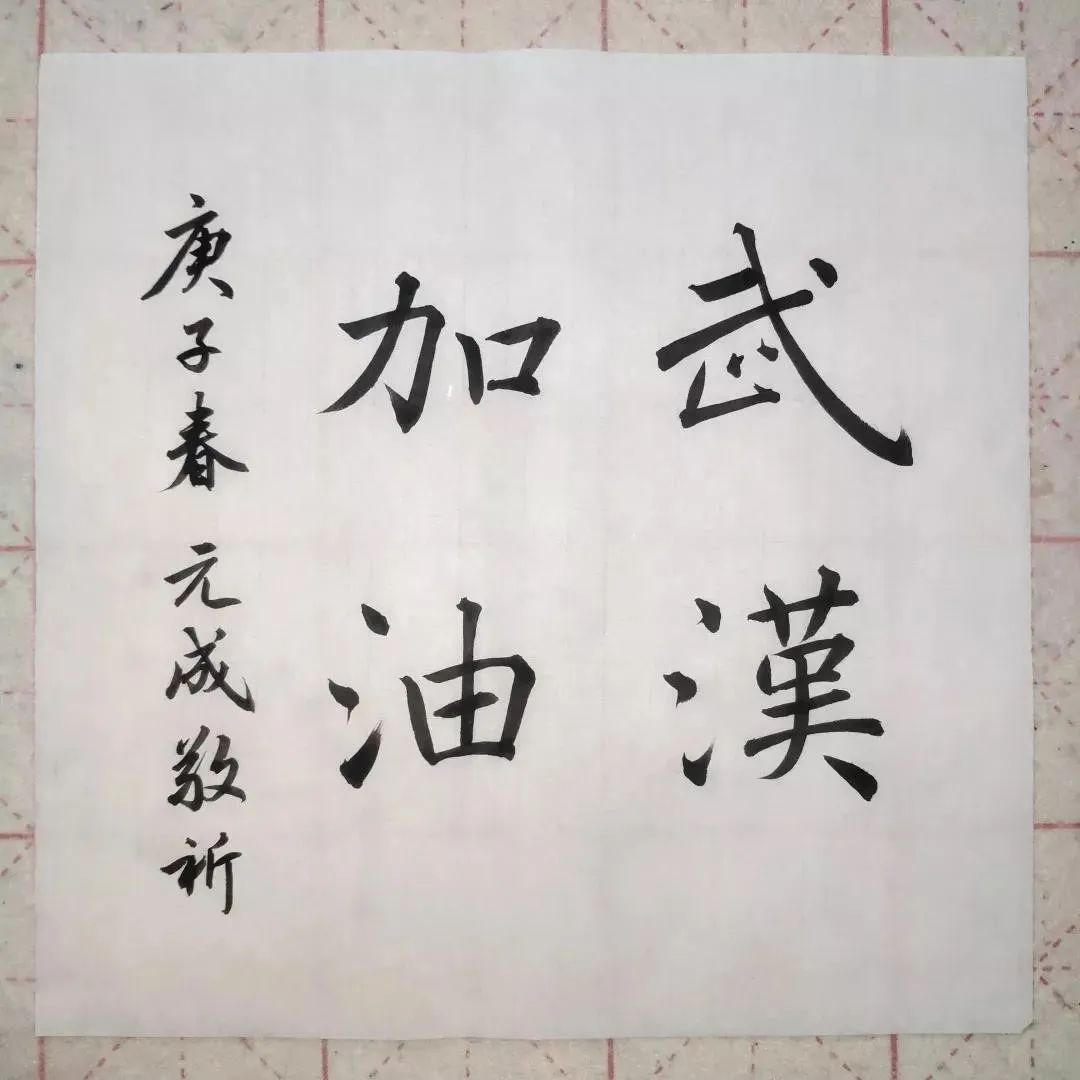 武漢
加油
庚子春 元成敬祈